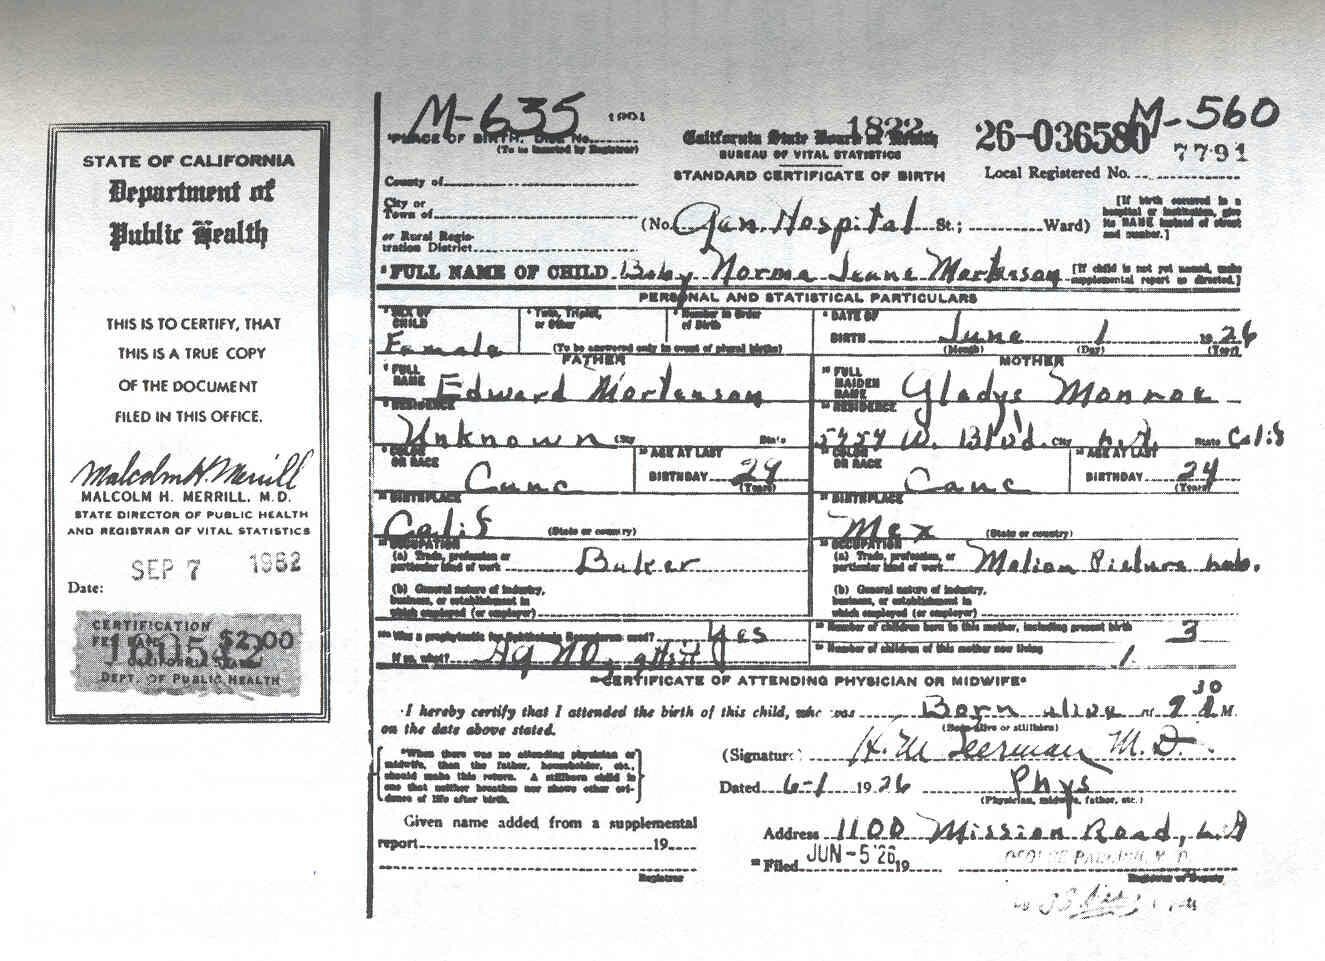 STATE OF CALIFORNIA
Department of
Public Health
THIS IS TO CERTIFY, THAT
THIS IS A TRUE COPY
OF THE DOCUMENT
FILED IN THIS OFFICE.
Malcolm H. Merrill
MALCOLM H. MERRILL, M.D.
STATE DIRECTOR OF PUBLIC HEALTH
AND REGISTRAR OF VITAL STATISTICS
SEP 7 1962
Date:
CERTIFICATION
$2.00
CALIFORNIA STATE
DEPT. OF PUBLIC HEALTH
M-635
M-560
PLACE OF BIRTH. Dist No.
(To be inserted by Registrar)
1822
California State Board of Health
BUREAU OF VITAL STATISTICS
STANDARD CERTIFICATE OF BIRTH
26-036580
7791
Local Registered No.
County of
City or
Town of
or Rural Regis-
tration District
(No. Gen. Hospital St.; Ward)
[If birth occurred in a
hospital or institution, give
its NAME instead of street
and number.]
FULL NAME OF CHILD Baby Norma Jeane Mortenson
[If child is not yet named, make
supplemental report as directed.]
PERSONAL AND STATISTICAL PARTICULARS
SEX OF
CHILD
Female
Twin, Triplet,
or Other
Number in Order
of Birth
(To be answered only in event of plural births)
DATE OF
BIRTH June 1 1926
(Month) (Day) (Year)
FATHER
FULL
NAME Edward Mortenson
RESIDENCE
Unknown City State
COLOR
OR RACE Cauc
AGE AT LAST
BIRTHDAY 29
(Years)
BIRTHPLACE
Calif (State or country)
OCCUPATION
(a) Trade, profession or
particular kind of work Baker
(b) General nature of industry,
business, or establishment in
which employed (or employer)
MOTHER
FULL
MAIDEN
NAME Gladys Monroe
RESIDENCE
5454 W. Blvd. City L.A. State Calif
COLOR
OR RACE Cauc
AGE AT LAST
BIRTHDAY 24
(Years)
BIRTHPLACE
Mex (State or country)
OCCUPATION
(a) Trade, profession, or
particular kind of work Motion Picture Lab.
(b) General nature of industry,
business, or establishment in
which employed (or employer)
Was a prophylactic for Ophthalmia Neonatorum used? Yes
If so, what? Ag NO3
Number of children born to this mother, including present birth 3
Number of children of this mother now living 1
CERTIFICATE OF ATTENDING PHYSICIAN OR MIDWIFE*
I hereby certify that I attended the birth of this child, who was Born alive at 9 30 A M.
(Born alive or stillborn)
on the date above stated.
*When there was no attending physician or
midwife, then the father, householder, etc.,
should make this return. A stillborn child is
one that neither breathes nor shows other evi-
dence of life after birth.
(Signature) H. M. Beerman M. D.
Dated 6-1 1926 Phys
(Physician, midwife, father, etc.)
Given name added from a supplemental
report 19
Registrar
Address 1100 Mission Road, L.A
Filed JUN-5'26 19
Registrar or Deputy